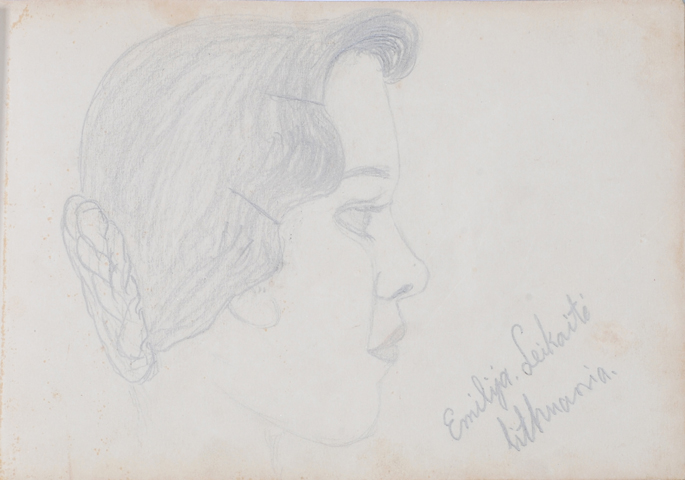 Emilija. Leikaitė
Lithuania.